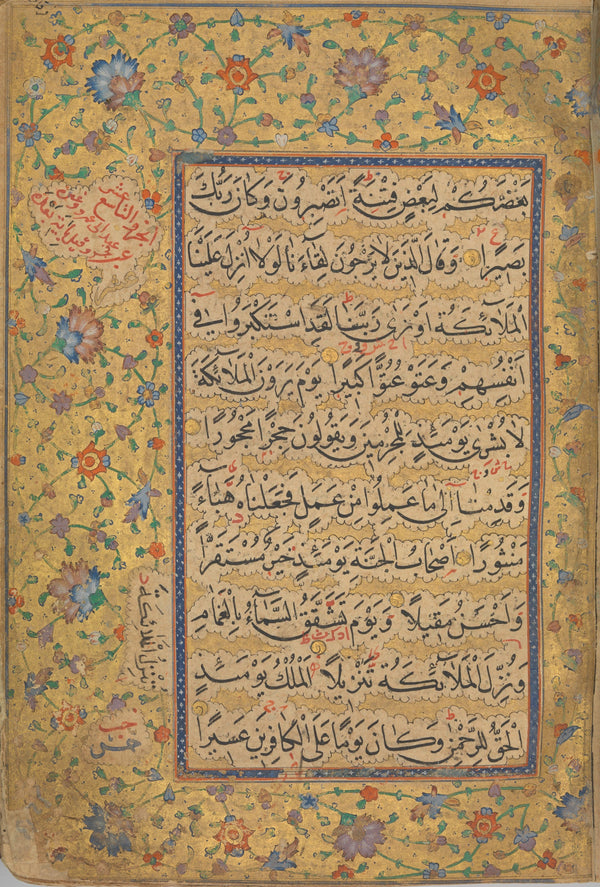 بَعْضَكُمْ لِبَعْضٍ فِتْنَةً اَتَصْبِرُونَ وَكَانَ رَبُّكَ
بَصِيرًا وَقَالَ الَّذِينَ لَا يَرْجُونَ لِقَاءَنَا لَوْلَا اُنْزِلَ عَلَيْنَا
الْمَلَآئِكَةُ اَوْ نَرٰى رَبَّنَا لَقَدِ اسْتَكْبَرُوا فِي
اَنْفُسِهِمْ وَعَتَوْ عُتُوًّا كَبِيرًا يَوْمَ يَرَوْنَ الْمَلَآئِكَةَ
لَا بُشْرٰى يَوْمَئِذٍ لِلْمُجْرِمِينَ وَيَقُولُونَ حِجْرًا مَحْجُورًا
وَقَدِمْنَا اِلٰى مَا عَمِلُوا مِنْ عَمَلٍ فَجَعَلْنَاهُ هَبَآءً
مَنْثُورًا اَصْحَابُ الْجَنَّةِ يَوْمَئِذٍ خَيْرٌ مُسْتَقَرًّا
وَاَحْسَنُ مَقِيلًا وَيَوْمَ تَشَقَّقُ السَّمَآءُ بِالْغَمَامِ
وَنُزِّلَ الْمَلَآئِكَةُ تَنْزِيلًا اَلْمُلْكُ يَوْمَئِذٍ
الْحَقُّ لِلرَّحْمٰنِ وَكَانَ يَوْمًا عَلَى الْكَافِرِينَ عَسِيرًا
التاسع عشر
حزب